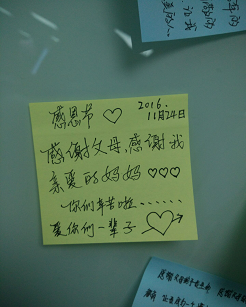 感恩节 ♡ 2016.
11月24日
感谢父母,感谢我
亲爱的妈妈♡♡♡
你们辛苦啦.......
爱你们一辈子